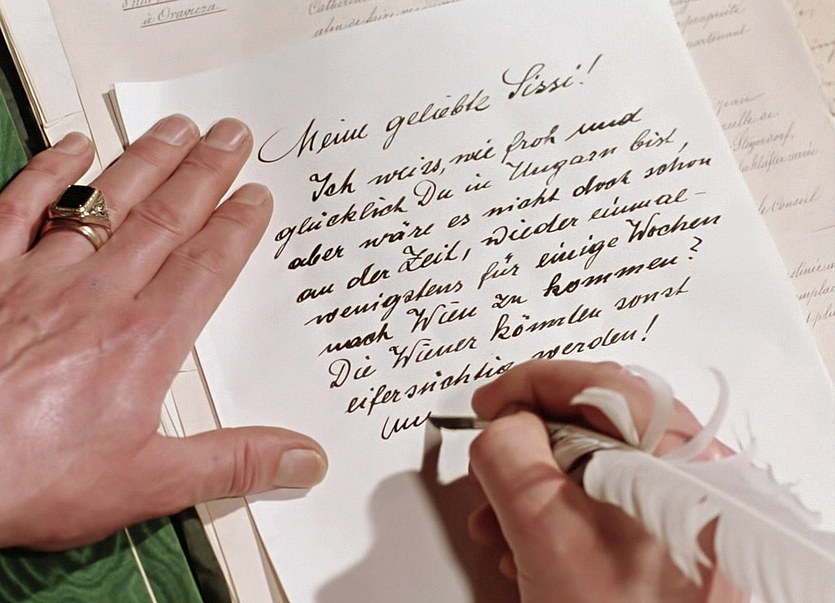 à Oravicza
Meine geliebte Sissi!
Ich weiss, wie froh und
glücklich Du in Ungarn bist,
aber wäre es nicht doch schon
an der Zeit, wieder einmal-
wenigstens für einige Wochen
nach Wien zu kommen?
Die Wiener könnten sonst
eifersüchtig werden!